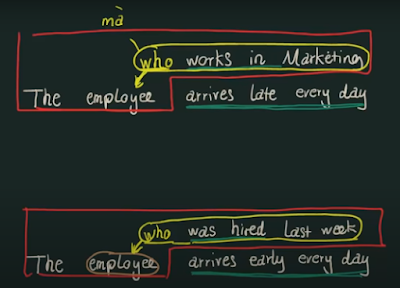 mà
who works in Marketing
The employee arrives late every day
who was hired last week
The employee arrives early every day